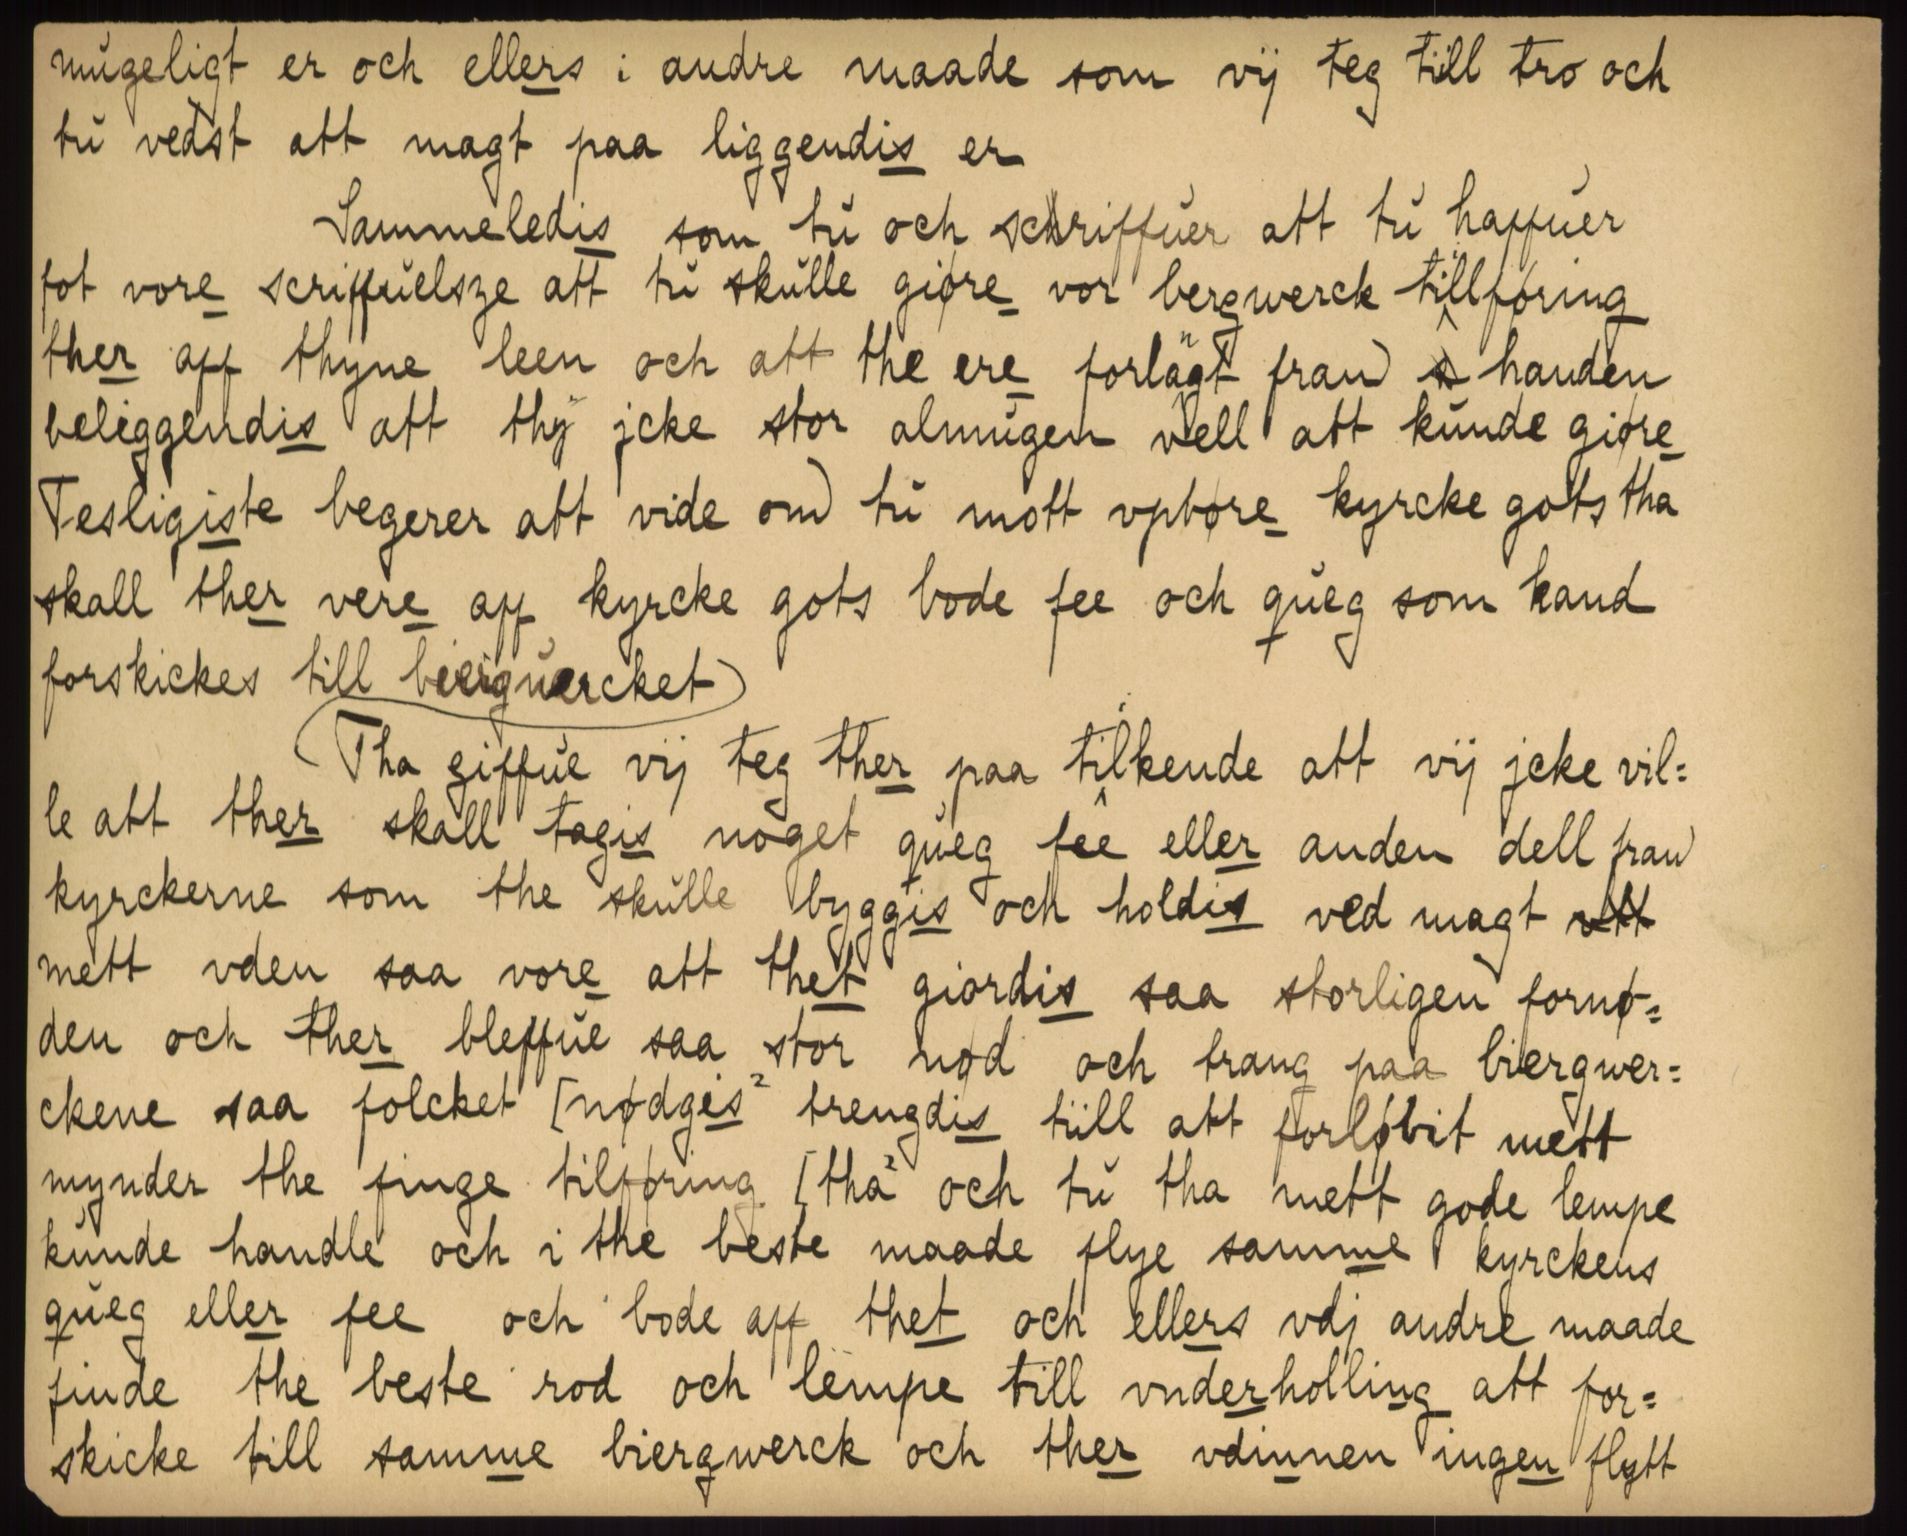 mŭgeligt er och ellers i andre maade som vij teg till tro och
tŭ vedst att magt paa liggendis er
Sammeledis som tŭ och schriffŭer att tŭ haffŭer
fot vore scriffŭelsze att tŭ skŭlle giøre vor bergwerck tillføring
ther aff thyne leen och att the ere forlangt fran handen
beliggendis att thÿ jcke stor almŭgen vell att kŭnde giøre
Tesligiste begerer att vide om tŭ mott vpbøre kyrcke gots tha
skall ther vere aff kyrcke gots bode fee och qŭeg som kand
forskickes till bierguercket
Tha giffŭe vij teg ther paa tilkende att vij jcke vil=
le att ther skall tagis noget qŭeg fee eller anden dell fran
kyrckerne som the skŭlle byggis och holdis ved magt
mett vden saa vore att thet giordis saa storligen fornø=
den och ther bleffŭe saa stor nød och trang paa biergwer=
ckene saa folcket [nødgis² trengdis till att forløbit mett
mynder the finge tilføring [tha² och tŭ tha mett gode lempe
kŭnde handle och i the beste maade flye samme kyrckens
qŭeg eller fee och bode aff thet och ellers vdj andre maade
finde the beste rod och lempe till vnderholling att for=
skicke till samme biergwerck och ther vdinnen ingen flytt